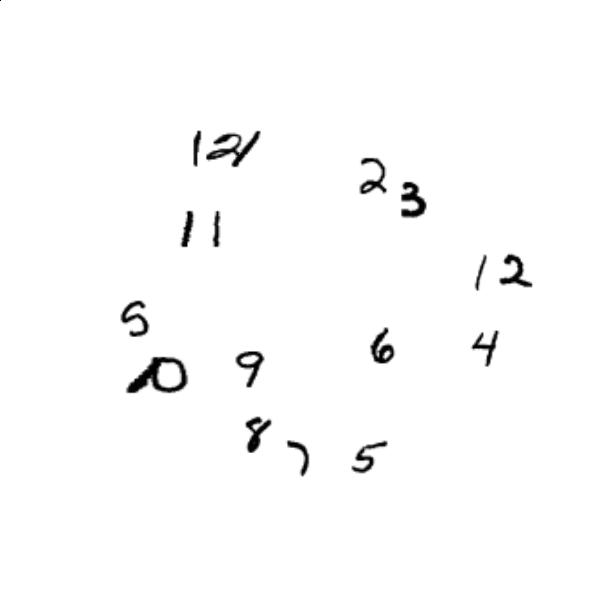 121
2
3
11
12
5
6
4
10
9
8
7
5